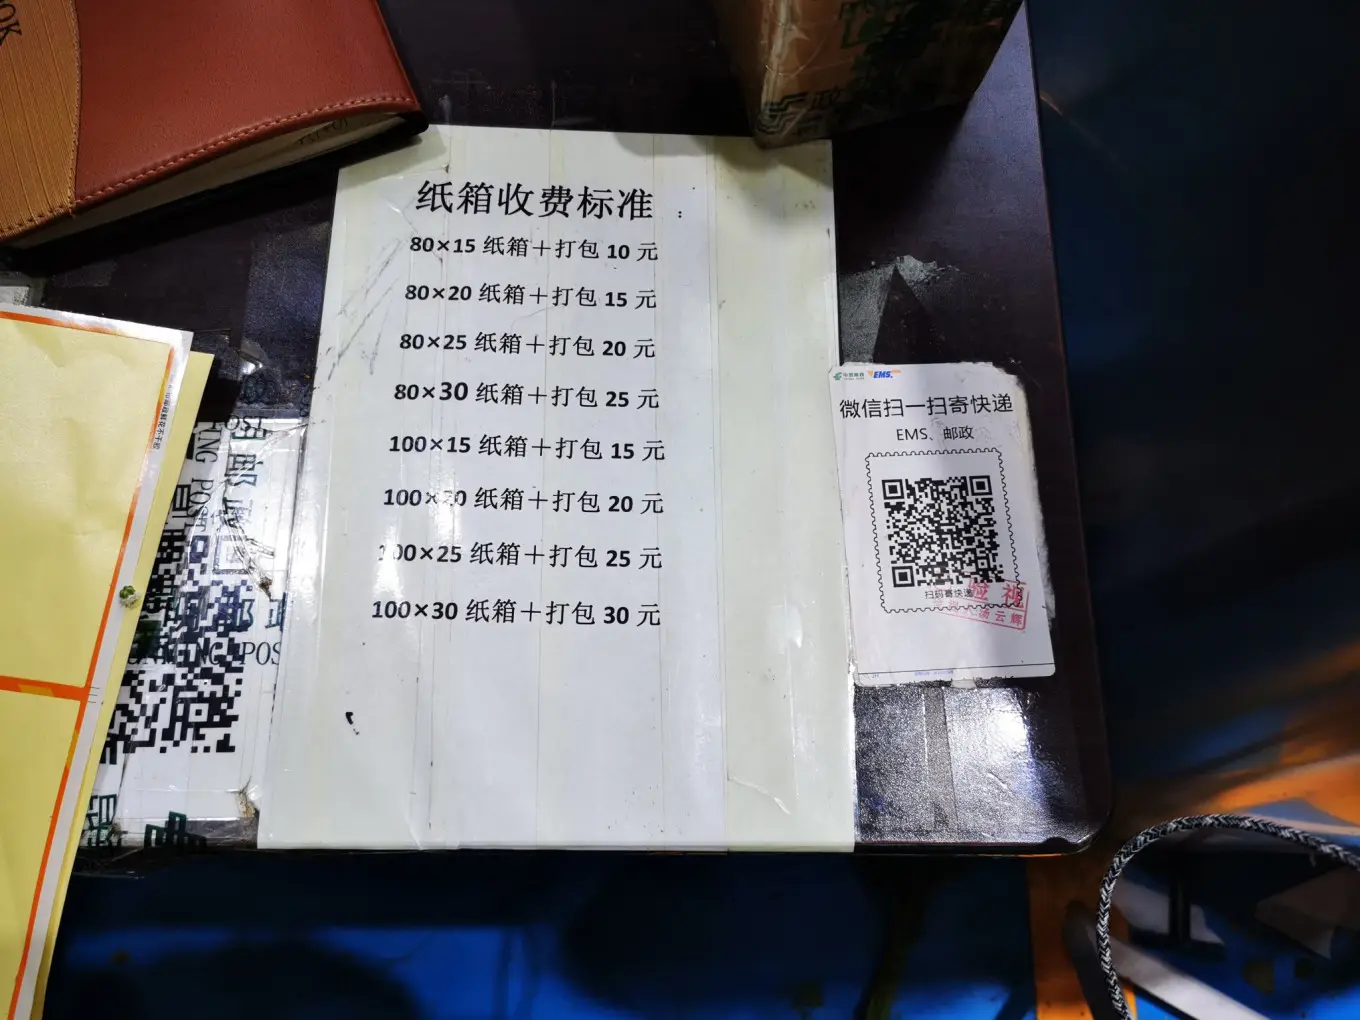 纸箱收费标准：
80×15 纸箱＋打包 10 元
80×20 纸箱＋打包 15 元
80×25 纸箱＋打包 20 元
80×30 纸箱＋打包 25 元
100×15 纸箱＋打包 15 元
100×20 纸箱＋打包 20 元
100×25 纸箱＋打包 25 元
100×30 纸箱＋打包 30 元
中国邮政 EMS
微信扫一扫寄快递
EMS、邮政
扫码寄快递
验视
云辉
POST
POS